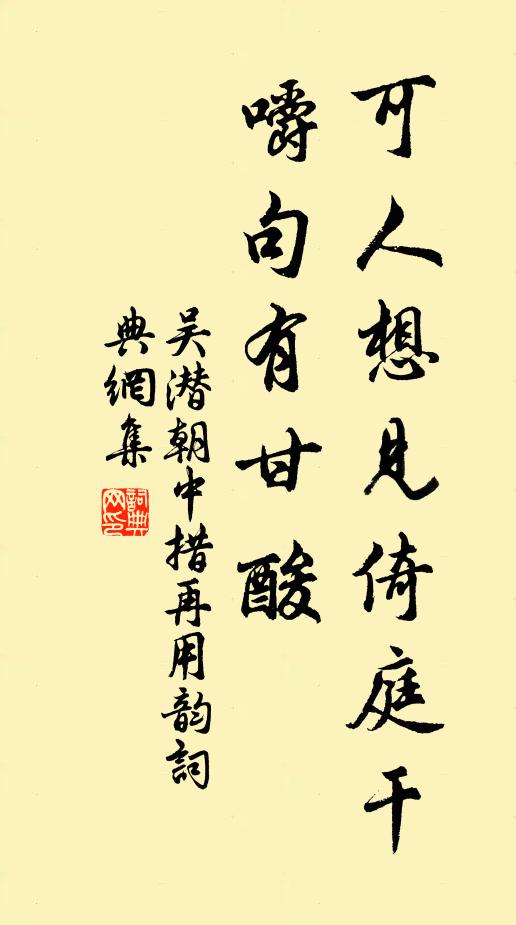 可人想见倚庭干
嚼句有甘酸
吴潜朝中措再用韵词
典網集
詞典网印